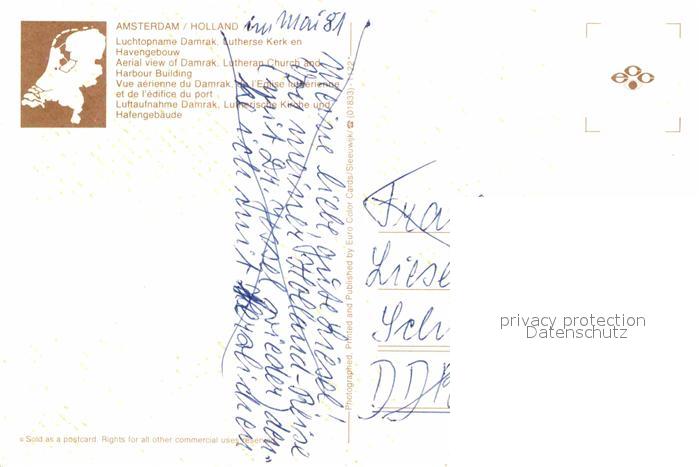 AMSTERDAM / HOLLAND
im Mai 81
Luchtopname Damrak, Lutherse Kerk en
Havengebouw
Aerial view of Damrak, Lutheran Church and
Harbour Building
Vue aérienne du Damrak, de l'Eglise luthérienne
et de l'édifice du port
Luftaufnahme Damrak, Lutherische Kirche und
Hafengebäude
ecc
Meine liebe, gute Liesel!
Von meiner Holland-Reise
(mit Dr. wieder) den
ich mit
Photographed, Printed and Published by Euro Color Cards/Sleeuwijk/ (01833)
Fra
Liese
Sch
DDR
privacy protection
Datenschutz
Sold as a postcard. Rights for all other commercial uses reserved